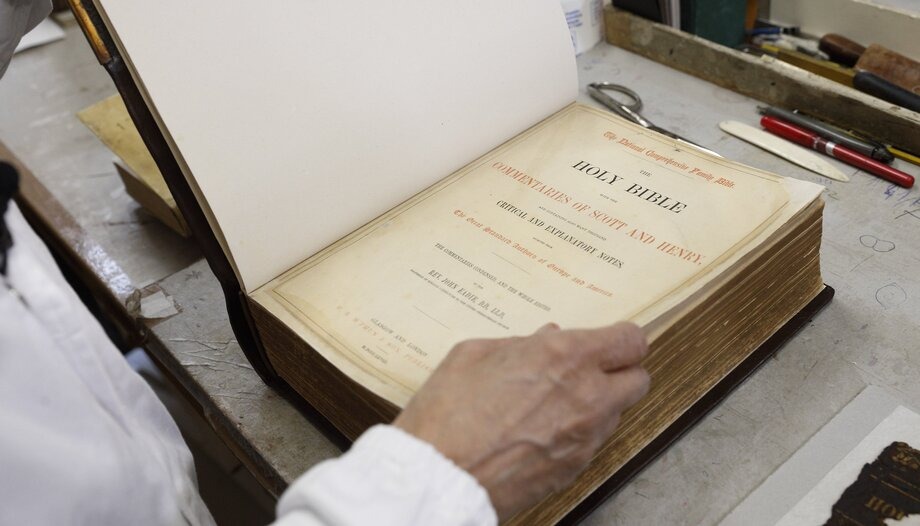 The National Comprehensive Family Bible.
THE
HOLY BIBLE
WITH THE
COMMENTARIES OF SCOTT AND HENRY,
CRITICAL AND EXPLANATORY NOTES,
The Great Standard Authors of Europe and America.
THE COMMENTARIES CONDENSED, AND THE WHOLE EDITED
BY THE
REV. JOHN EADIE, D.D. LL.D.,
GLASGOW AND LONDON
HO